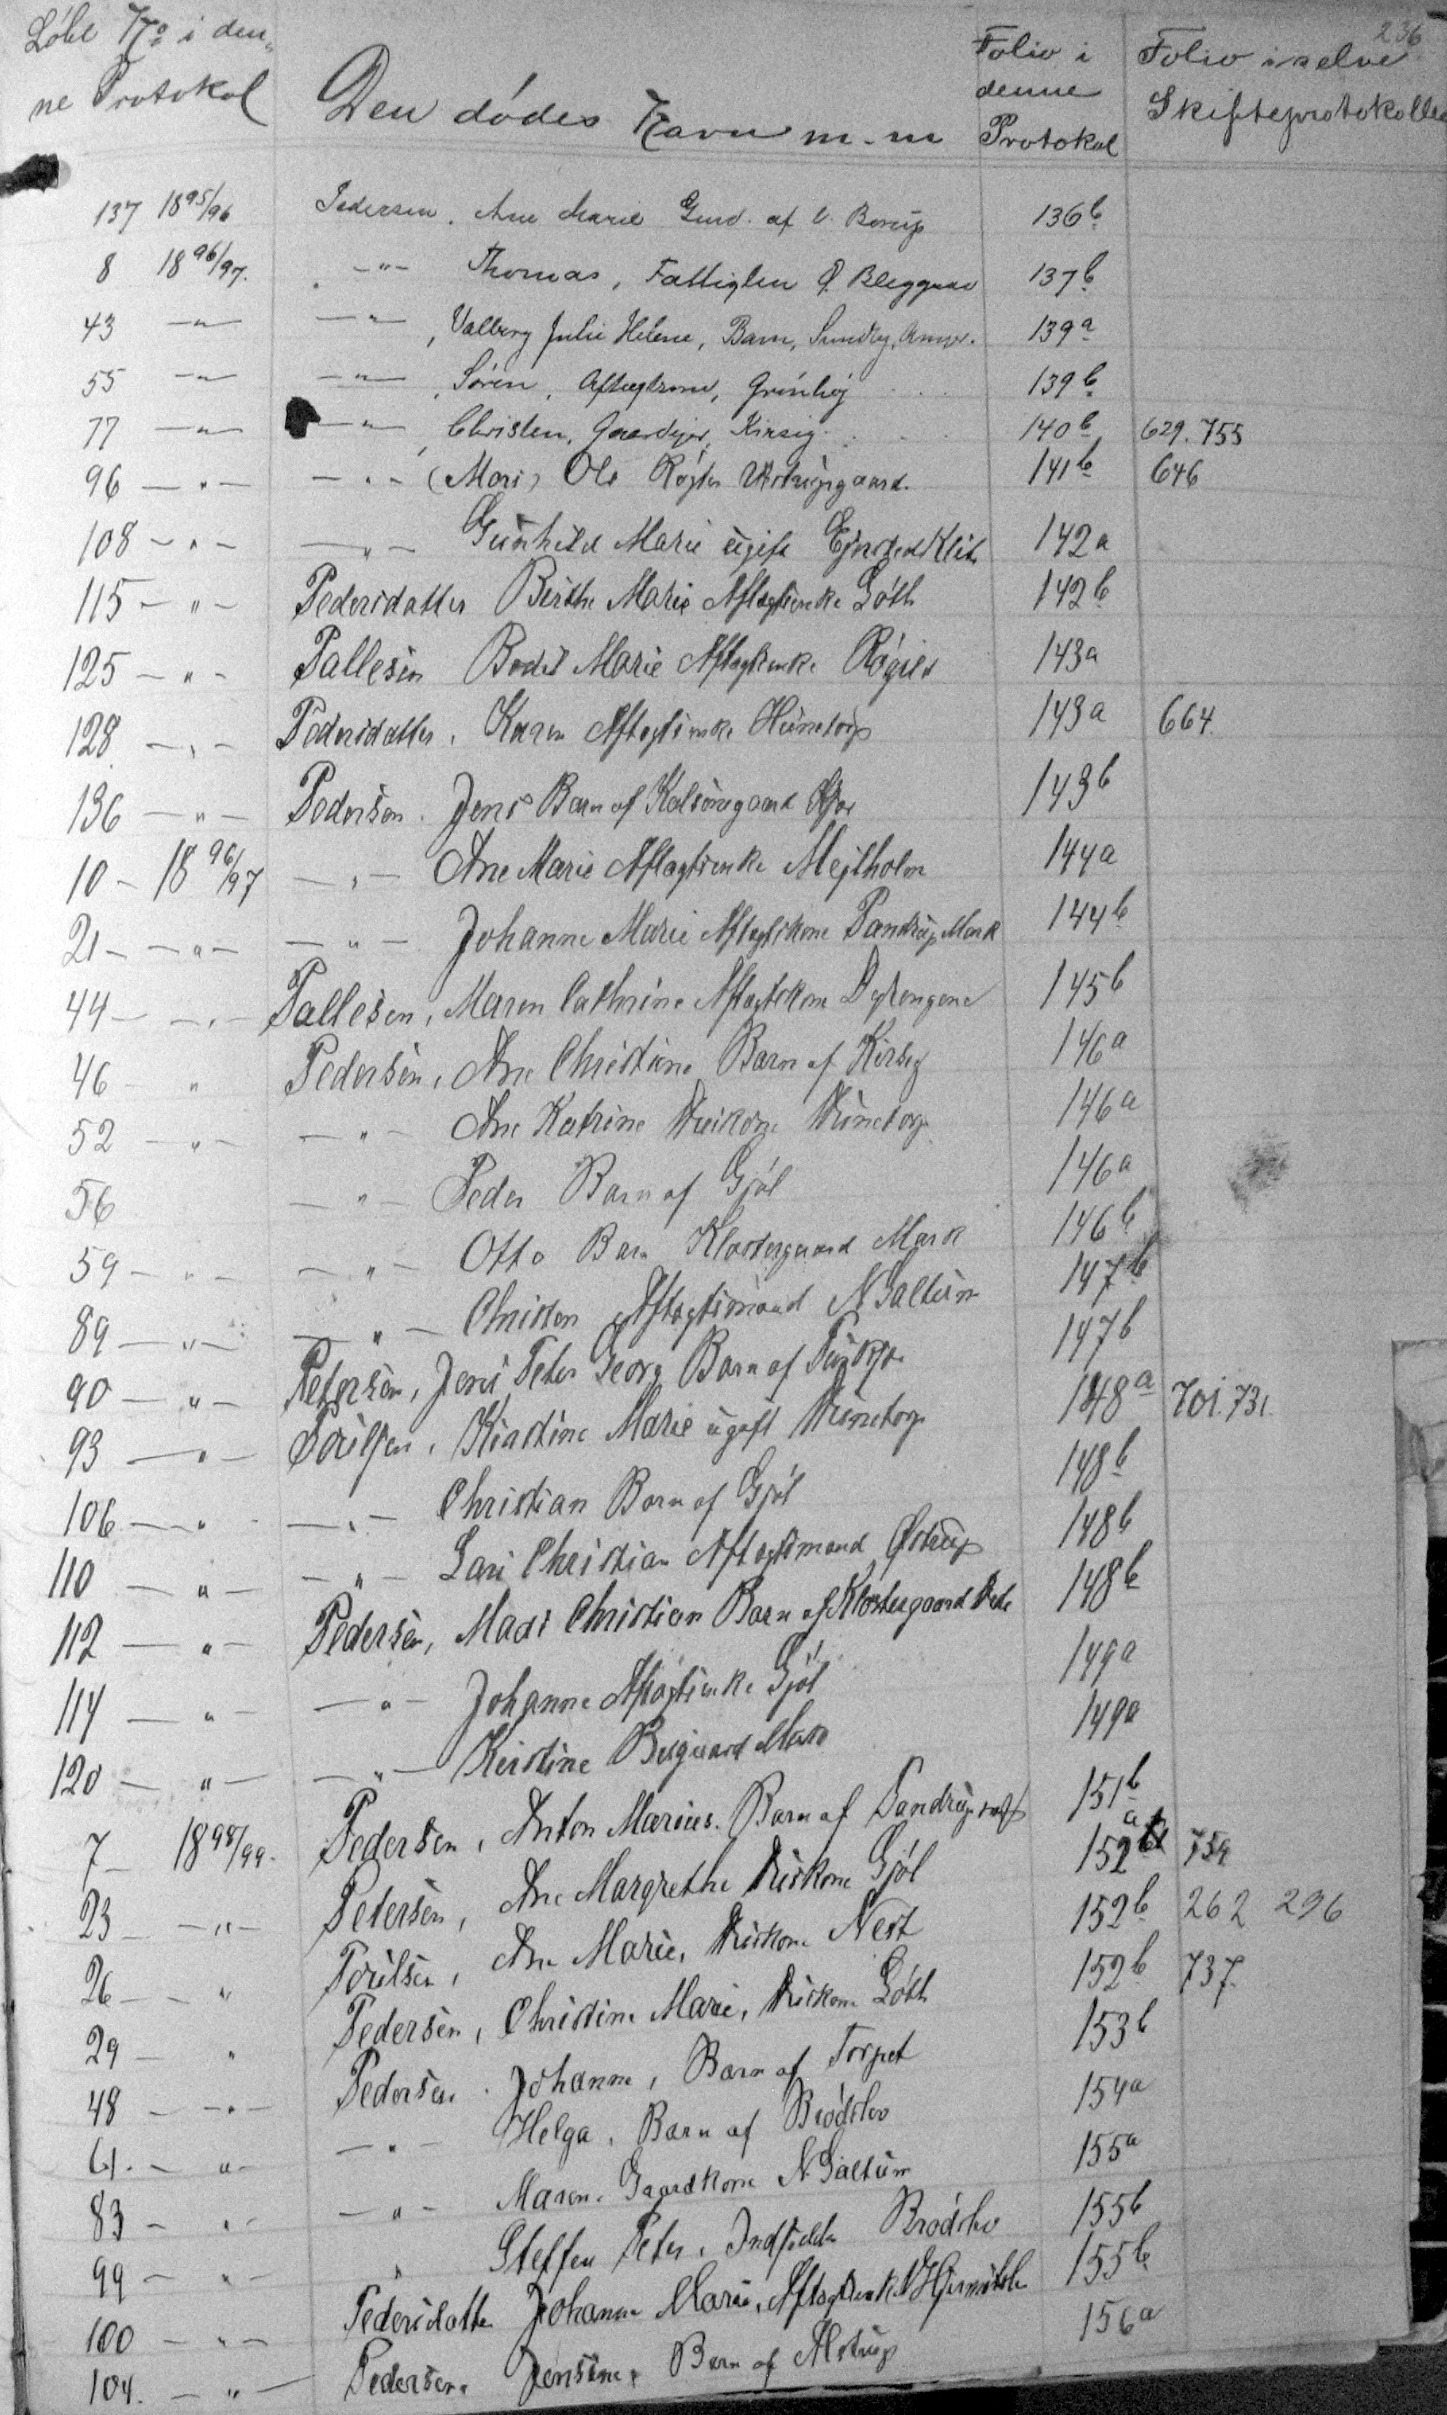 236
Løbe No i den-
ne Protokol
Den dødes Navn m.m
Folio i denne Protokol
Folio i selve Skifteprotokollen
137 1895/96 Pedersen. Ane Marie Gmd. af V. Borup 136b
8 1896/97. -"- Thomas, Fattiglem Ø. Bleggaard 137b
43 -"- -"-, Valborg Julie Helene, Barn, Sundby, 139a
55 -"- -"-, Søren, Aftægtsmd, Grønhøj 139b
77 -"- -"-, Christen, Gaardejer, Kirsig 140b 629. 755
96 -"- -"- (Mari) Ole Røgter Vestrupgaard. 141b 646
108 -"- -"- Gunhild Marie ugift Ejersted Klit 142a
115 -"- Pedersdatter Birthe Marie Aftægtsenke Gøttr 142b
125 -"- Pallesen Bodil Marie Aftægtsenke Røgild 143a
128 -"- Pedersdatter, Karen Aftægtsenke Hunetorp 143a 664
136 -"- Pedersen. Jens Barn af Kalsnesgaard 143b
10 - 1896/97 -"- Ane Marie Aftægtsenke Mejlholm 144a
21 -"- -"- Johanne Marie Aftægtskone Pandrup Mark 144b
44 -"- Pallesen, Maren Cathrine Aftægtskone Dyrengene 145b
46 " Pedersen, Ane Christine Barn af Kirsig 146a
52 -"- -"- Ane Katrine Huskone Hunetorp 146a
56 -"- Peder Barn af Gjøl 146a
59 -"- -"- Otto Barn Klostergaard Mark 146b
89 -"- -"- Christen Aftægtsmand N Saltum 147b
90 -"- Petersen, Jens Peter Georg Barn af 147b
93 -"- Poulsen, Kirstine Marie ugift Hunetorp 148a 701. 731
106 -"- -"- Christian Barn af Gjøl 148b
110 -"- -"- Lars Christian Aftægtsmand Østrup 148b
112 -"- Pedersen, Mads Christian Barn af Klostergaard 148b
114 -"- -"- Johanne Aftægtsenke Gjøl 149a
120 -"- -"- Kirstine Bisgaard Mark 149a
7 - 1898/99. Pedersen, Anton Marius. Barn af Pandrup 151b
23 -"- Petersen, Ane Margrethe Huskone Gjøl 152a 754
26 -"- Poulsen, Ane Marie, Huskone Nest 152b 262 296
29 - " Pedersen, Christine Marie, Huskone Gøttr 152b 737.
48 -"- Pedersen. Johanne, Barn af Torpet 153b
61. -"- -"- Helga, Barn af Brødslev 154a
83 -"- -"- Maren, Gaardkone N Saltum 155a
99 -"- " Steffen Peter, Indsidder Brødslev 155b
100 -"- Pedersdatter Johanne Marie, Aftægtsenke V Hjermitslev 155b
104. -"- Pedersen, Jensine, Barn af Alstrup 156a